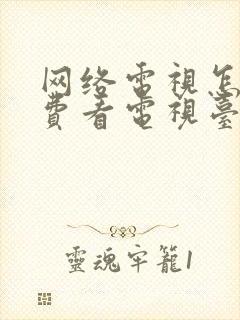 网络电視怎
費看電視臺
靈魂牢籠1